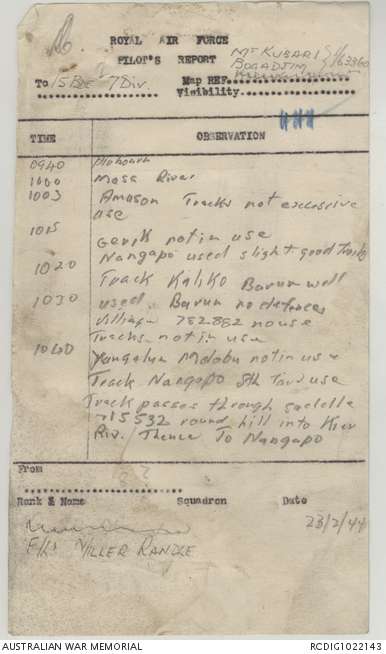 ROYAL AIR FORCE
PILOT'S REPORT
Mt KUBARI S/1 63360
BOGADJIM
To 15 Bde 7 Div.
Map REF.
Visibility
TIME OBSERVATION
0940
1000 Mosa River
1003 Amuson Tracks not excessive
use
1015 Gerik not in use
1020 Nangapo used slight good tracks
Track Kaliko Barum well
1030 used. Barum no defences
Village 782882 no use
Tracks not in use
1040 Yangalum Molobu not in use
Track Nangapo Sth use
Track passes through saddle
715532 round hill into Kier
Riv. Thence To Nangapo
From
Rank & Name Squadron Date
23/2/44
F/Lt MILLER RANDLE
AUSTRALIAN WAR MEMORIAL RCDIG1022143